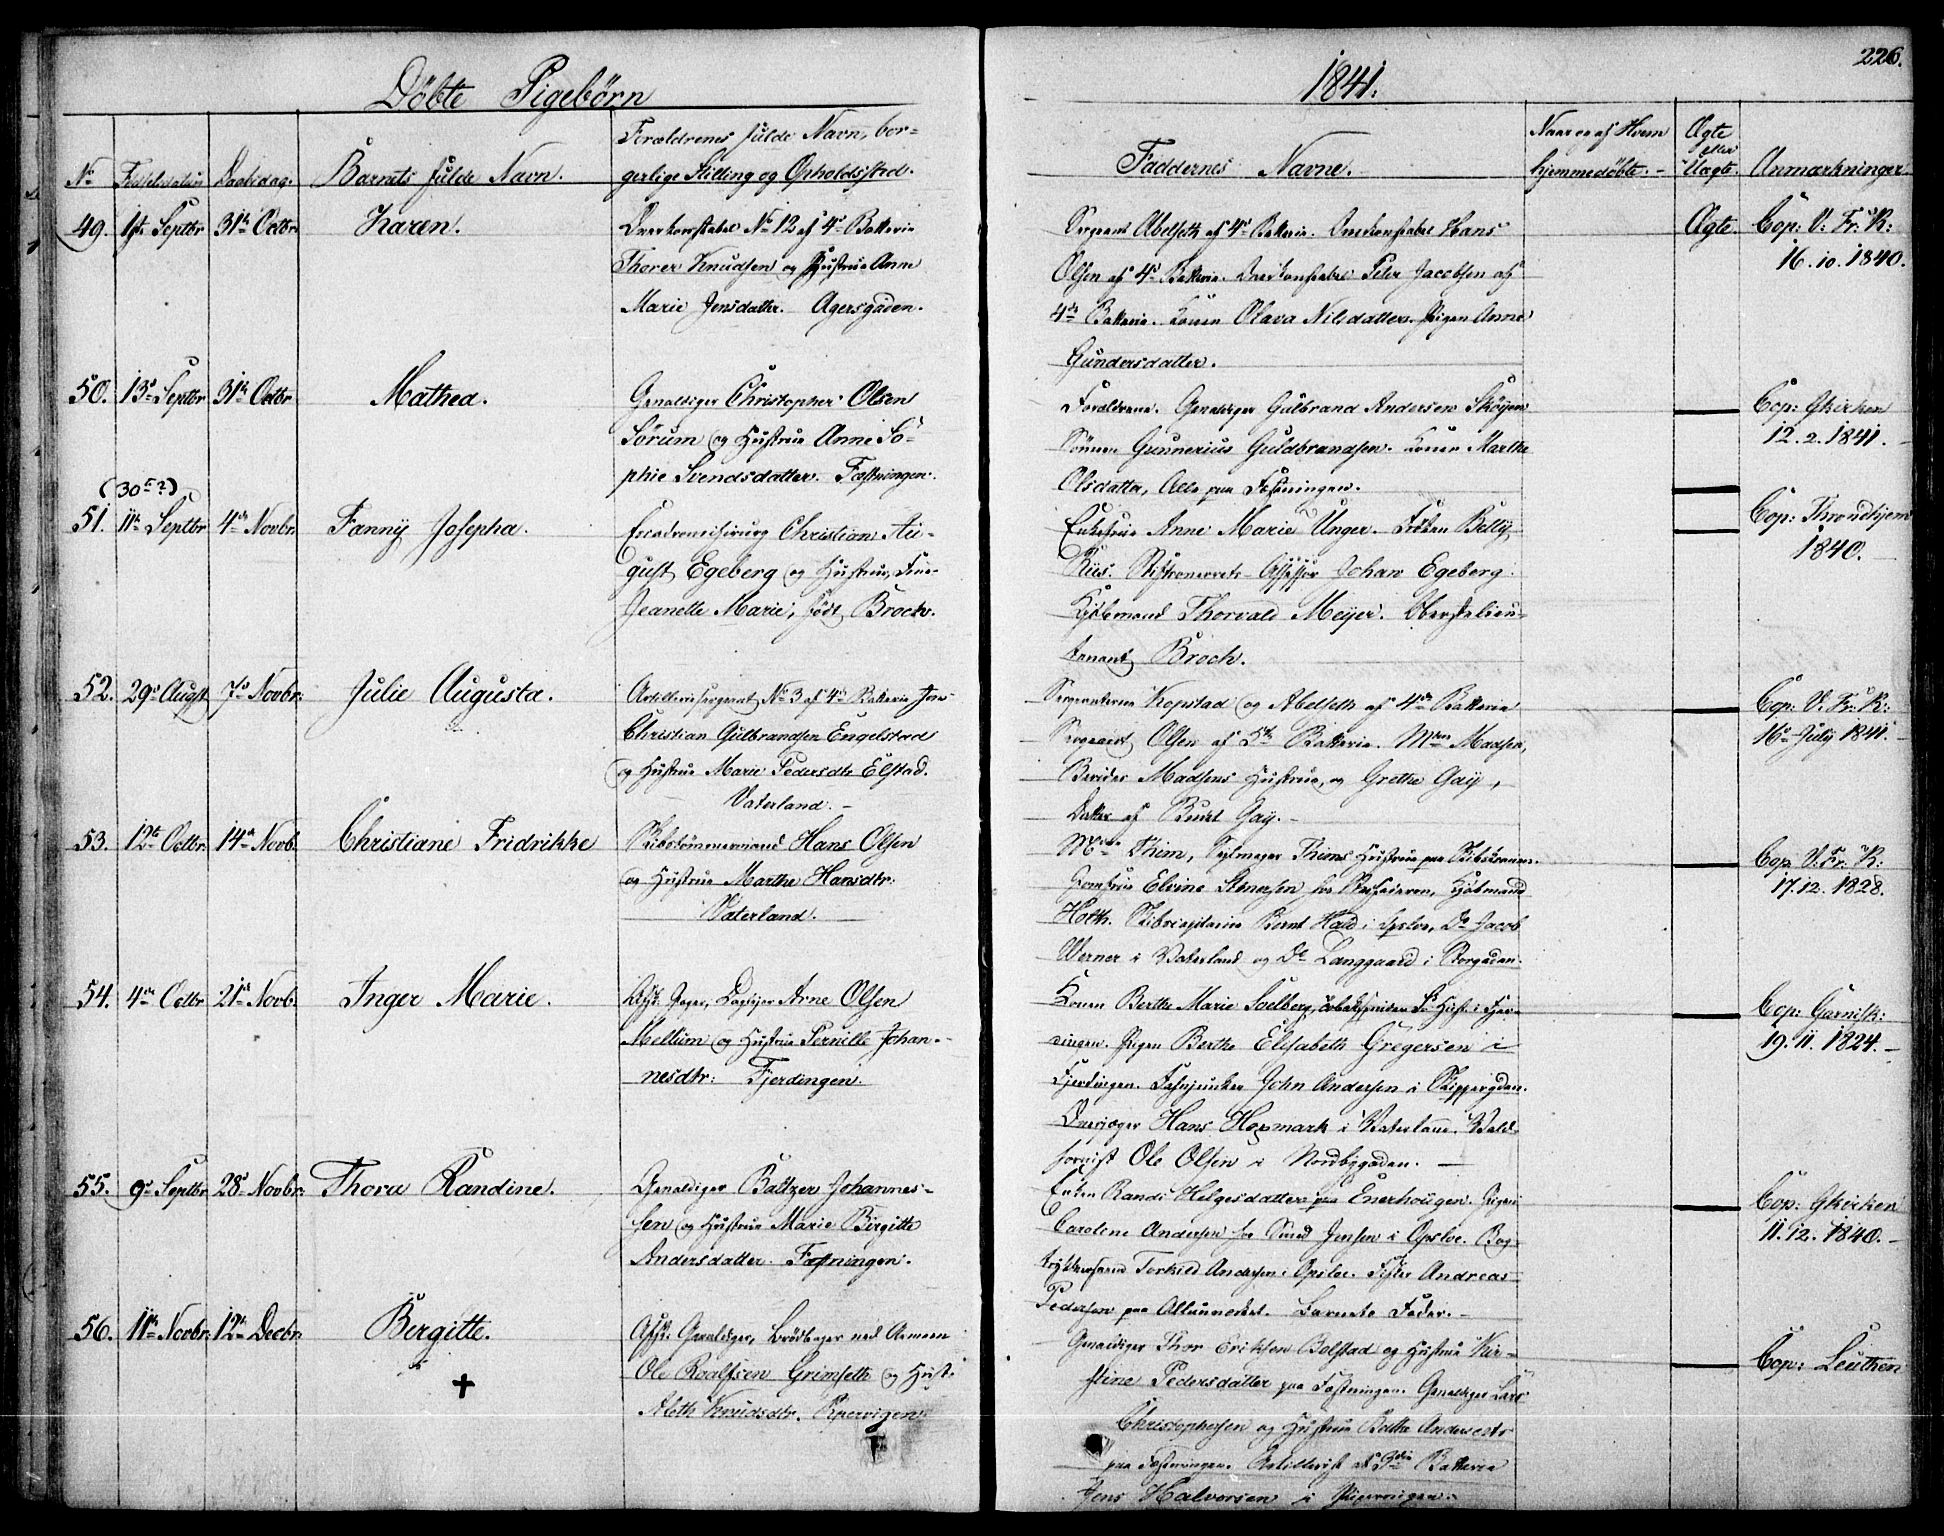 226.
Döbte Pigebörn
1841.
No Fødselsdatum Daabsdag. Barnets fulde Navn. Forældrenes fulde Navn, bor-
gerlige Stilling og Opholdssted.
Faddernes Navne.
Naar og af Hvem
hjemmedöbte.
Ægte
eller
Uægte.
Anmærkninger
49. 1ste Septbr 31te Octbr. Karen.
Overkonstabel No 12 af 4de Batterie
Thorer Knudsen og Hustrue Anne
Marie Jensdatter. Agersgaden.
Sergeant Abelseth af 4de Batterie. Overkonstabel Hans
Olsen af 4de Batterie. Overkonstabel Peter Jacobsen af
4de Batterie. Konen Olava Nilsdatter. Pigen Anne
Gundersdatter.
Ægte
Cop: V: Fr: K:
16.10.1840.
50. 13de Septbr 31te Octbr Mathea.
Gevaldiger Christopher Olsen
Sörum og Hustrue Anne So-
phie Svendsdatter. Fæstningen.
Forældrene. Gevaldiger Gulbrand Andersen Skøyen
Sönnen Gunnerius Guldbrandsen. Konen Marthe
Olsdatter, Alle paa Fæstningen.
Cop: Gkirken
12.2.1841.
(30te?)
51. 11te Septbr 4de Novbr. Fanny Josepha.
Escadronschirurg Christian Au-
gust Egeberg og Hustrue, Fru
Jeanette Marie, født Broch.
Enkefrue Anne Marie Unger. Frøken Betty
Riis. Stiftsoverrets-Assessor Johan Egeberg.
Kjøbmand Thorvald Meyer. Oberstelieu-
tenant Broch.
Cop: Throndhjem
1840.
52. 29de Augst 7de Novbr. Julie Augusta.
Artilleriesergeant No 3 af 4de Batterie Jon
Christian Gulbrandsen Engelstad
og Hustrue Marie Pedersdtr Elstad.
Vaterland.
Sergeanterne Kopstad og Abelseth af 4de Batterie
Sergeant Olsen af 5te Batterie. Mdm Madsen,
Berider Madsens Hustrue, og Grethe Gay,
Datter af Buntm. Gay.
Cop: V: Fr: K:
16de July 1841.
53. 12te Octbr. 14de Novb. Christiane Fridrikke
Skibstømmermand Hans Olsen
og Hustrue Marthe Hansdtr.
Vaterland.
Mdm Thim, Seilmager Thims Hustrue paa
Jomfrue Elvine Stenersen Kjøbmand
Hoth. Skibscapitaine Bernt Hald i Opsloe, Do Jacob
Werner i Vaterland og Do Langgaard i Storgaden.
Cop V: Fr: K:
17.12.1828.
54. 4de Octbr 21de Novb. Inger Marie.
Afsk. Jæger, Dagleier Arne Olsen
Mellum og Hustrue Pernille Johan-
nesdtr: Fjerdingen.
Konen Berthe Marie Solberg, Hust. i Fjer-
dingen. Pigen Berthe Elisabeth Gregersen i
Fjerdingen. Fahnjunker John Andersen i Skippergden.
Overjæger Hans Hopmark i Vaterland. Vald-
hornist Ole Olsen i Nordbygaden.
Cop: Garnisk:
19.11.1824.
55. 9de Septbr 28de Novbr: Thora Randine.
Gevaldiger Baltzer Johannes-
sen og Hustrue Marie Birgitte
Andersdatter. Fæstningen.
Enken Randi Helgesdatter paa Enerhougen. Pigen
Caroline Andersen hos Smed Jensen i Opsloe. Bog-
trykkersvend Torkild Andersen i Opsloe. Andreas
Pedersen paa Allunverket. Barnets Fader.
Cop: Gkirken
11.12.1840.
56. 11te Novbr. 12te Decbr. Bergitte.
+
Afsk: Gevaldiger, Brødbager ved Armeen
Ole Roalfsen Grimseth og Hust.
Aleth Knudsdtr. Pipervigen.
Gevaldiger Thor Eriksen Bolstad og Hustrue Kir-
stine Pedersdatter paa Fæstningen. Gevaldiger Lars
Christophersen og Hustrue Berthe Andersdtr
paa Fæstningen. Artillerist af 3die Batterie
Jens Halvorsen i Pipervigen.
Cop: Leuthen